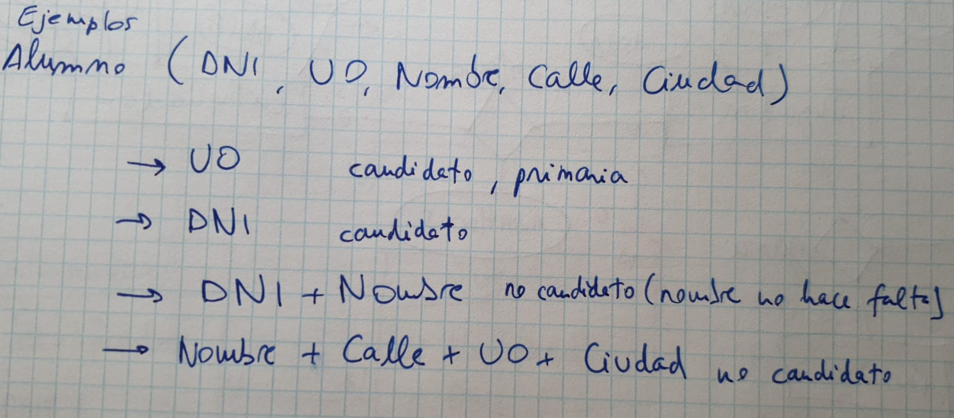 Ejemplos
Alumno (DNI, UO, Nombre, Calle, Ciudad)
→ UO candidato, primaria
→ DNI candidato
→ DNI + Nombre no candidato (nombre no hace falta)
→ Nombre + Calle + UO + Ciudad no candidato